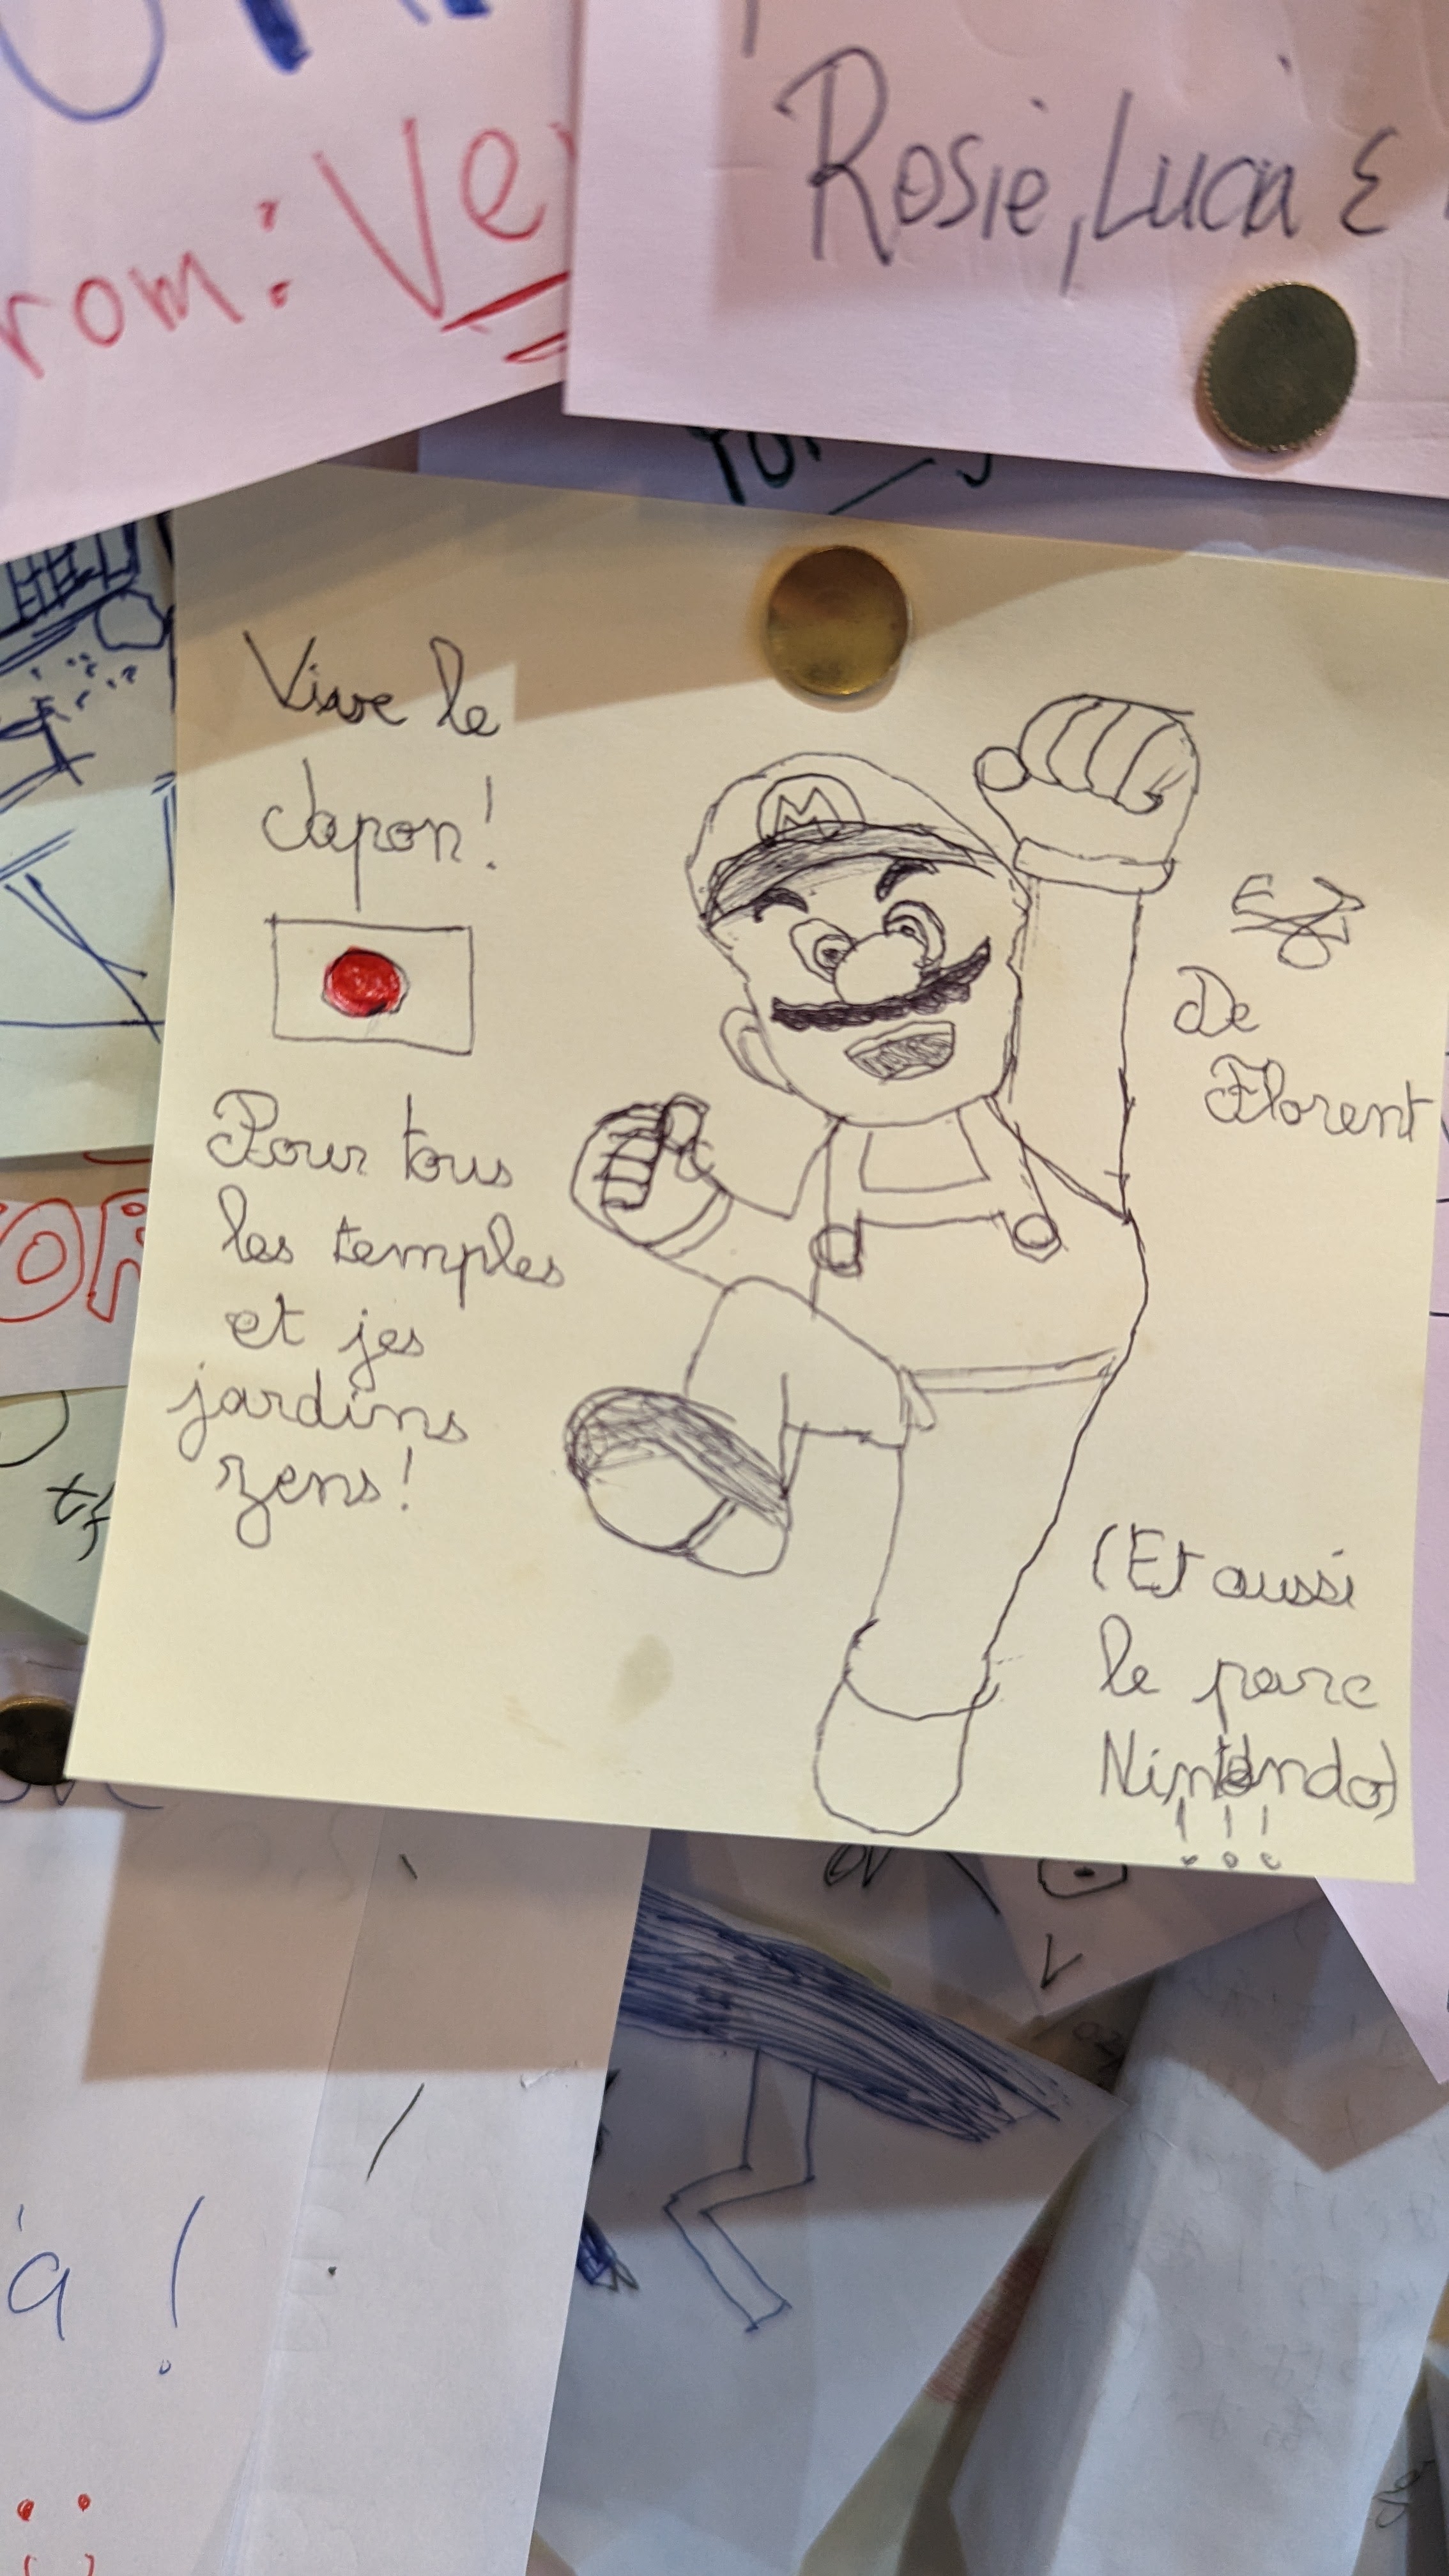 rom: Ve
Rosie, Lucia &
Vive le
Japon!
M
De
Florent
Pour tous
les temples
et jes
jardins
zens!
(Et aussi
le parc
Nintendo)
!!!
à !